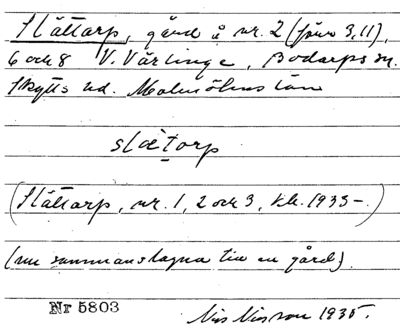 Slättarp, gård å nr. 2 (förr 3, 11),
6 och 8 V. Värlinge, Bodarps sn.
Skytts hd. Malmöhus län
slætorp
(Slättarp, nr. 1, 2 och 3, kk. 1935-.)
(nu sammanslagna till en gård).
Nr 5803
Nils Nilsson 1935.